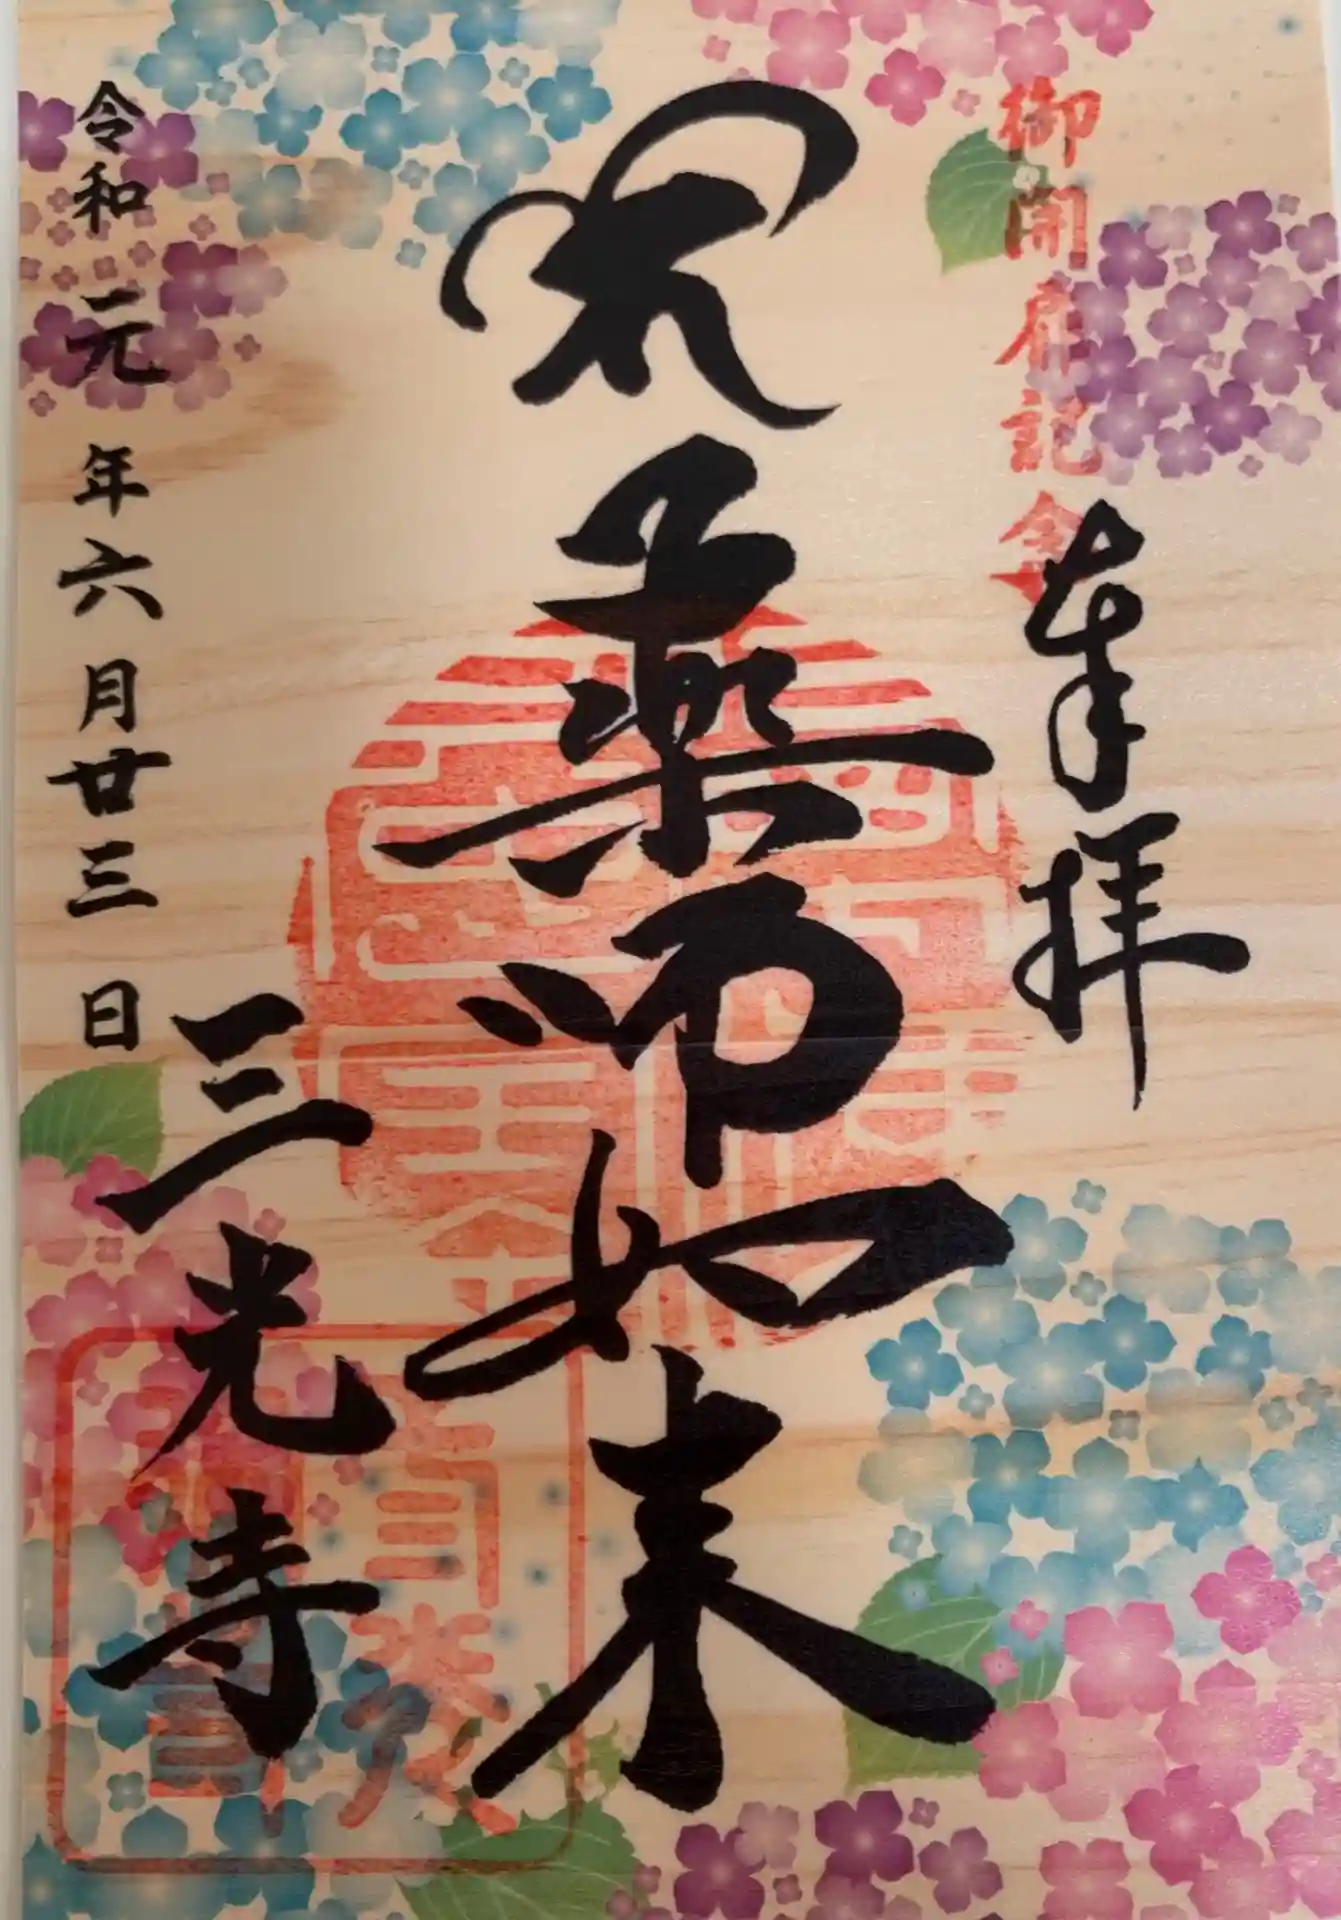 御開扉記念
奉拝
薬師如来
三光寺
令和元年六月廿三日